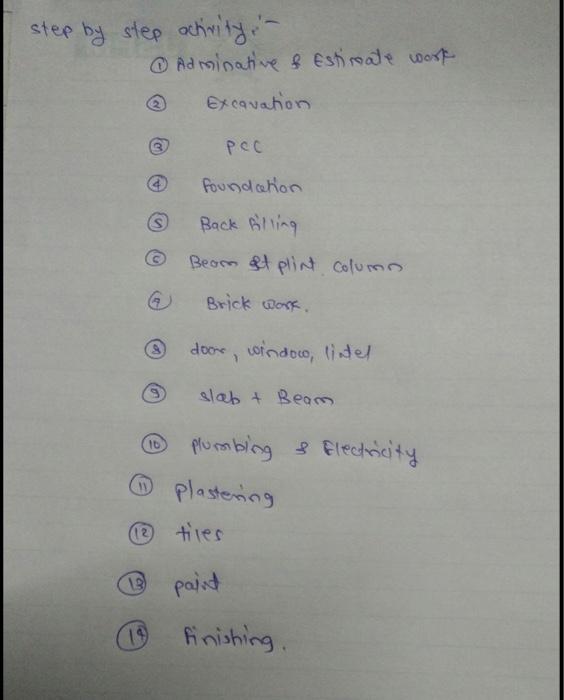 step by step activity:-
① Adminative & Estimate work
② Excavation
③ PCC
④ foundation
⑤ Back filling
⑥ Beam plint column
⑦ Brick work.
⑧ door, window, lintel
⑨ slab + Beam
⑩ plumbing & Electricity
⑪ plastering
⑫ tiles
⑬ paint
⑭ finishing.